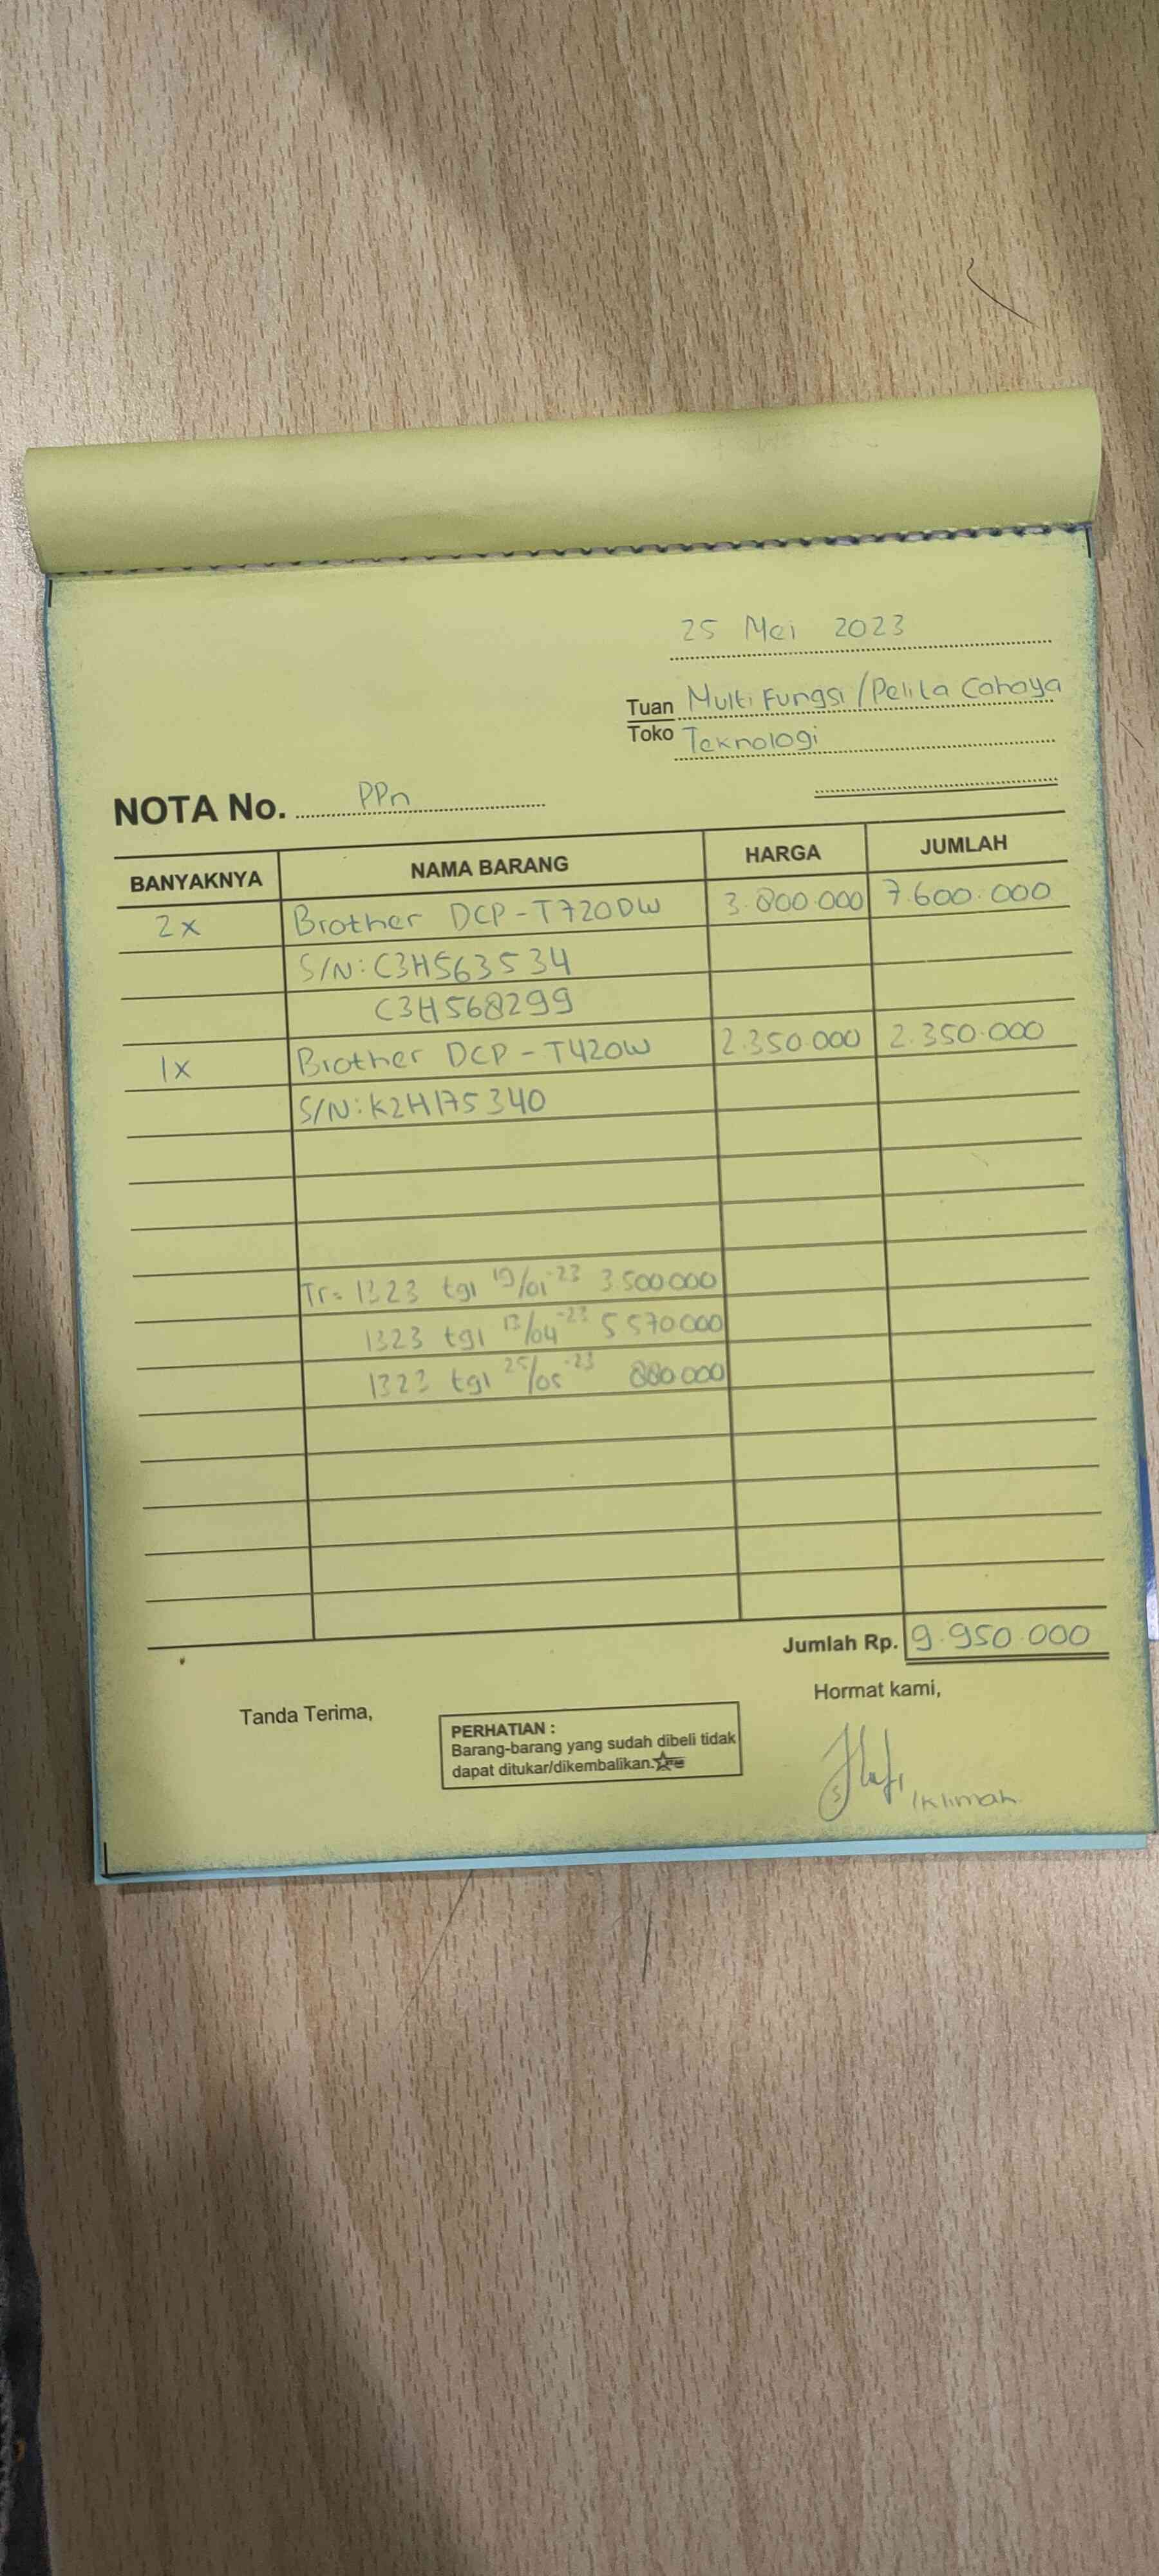 25 Mei 2023
Tuan Multi Fungsi/Pelita Cahaya
Toko Teknologi
NOTA No. PPn
BANYAKNYA NAMA BARANG HARGA JUMLAH
2x Brother DCP-T720DW 3.800.000 7.600.000
S/N: C3H563534
C3H568299
1x Brother DCP-T420W 2.350.000 2.350.000
S/N: K2H175340
Tr= 1323 tgl 19/01-23 3.500.000
1323 tgl 13/04-23 5.570.000
1323 tgl 25/05-23 880.000
Jumlah Rp. 9.950.000
Tanda Terima,
PERHATIAN :
Barang-barang yang sudah dibeli tidak
dapat ditukar/dikembalikan.
Hormat kami,
Iklimah